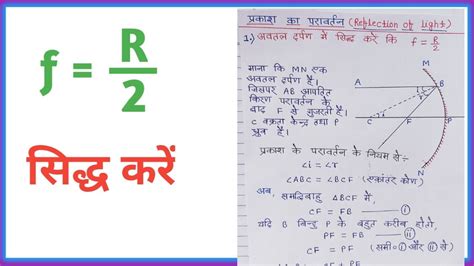 f = R/2
सिद्ध करें
प्रकाश का परावर्तन (Reflection of light)
1.) अवतल दर्पण में सिद्ध करें कि f = R/2
माना कि MN एक
अवतल दर्पण है।
जिसपर AB आपतित
किरण परावर्तन के
बाद F से गुजरती है।
C वक्रता केन्द्र तथा P
ध्रुव है।
M
A
B
C
F
P
N
i
r
प्रकाश के परावर्तन के नियम से:-
∠i = ∠r
∠ABC = ∠BCF (एकांतर कोण)
अब, समद्विबाहु ΔBCF में,
CF = FB — (i)
यदि B बिन्दु P के बहुत करीब हो तो,
PF = FB — (ii)
CF = PF (समी० (i) और (ii) से)